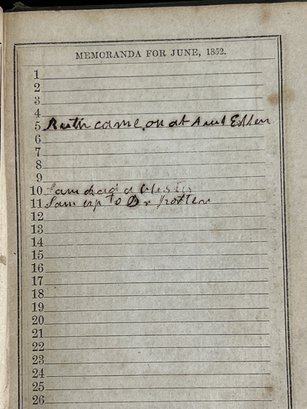 MEMORANDA FOR JUNE, 1852.
1
2
3
4
5 Ruth came on at Aunt Esther
6
7
8
9
10 Sam a
11 Sam up to Dr
12
13
14
15
16
17
18
19
20
21
22
23
24
25
26